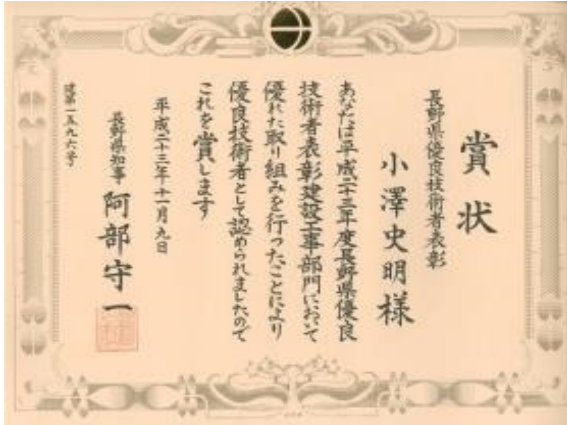 賞状
長野県優良技術者表彰
小澤史明様
あなたは平成二十三年度長野県優良
技術者表彰建設工事部門において
優れた取り組みを行ったことにより
優良技術者として認められましたので
これを賞します
平成二十三年十一月九日
長野県知事 阿部守一
建第一五九六号